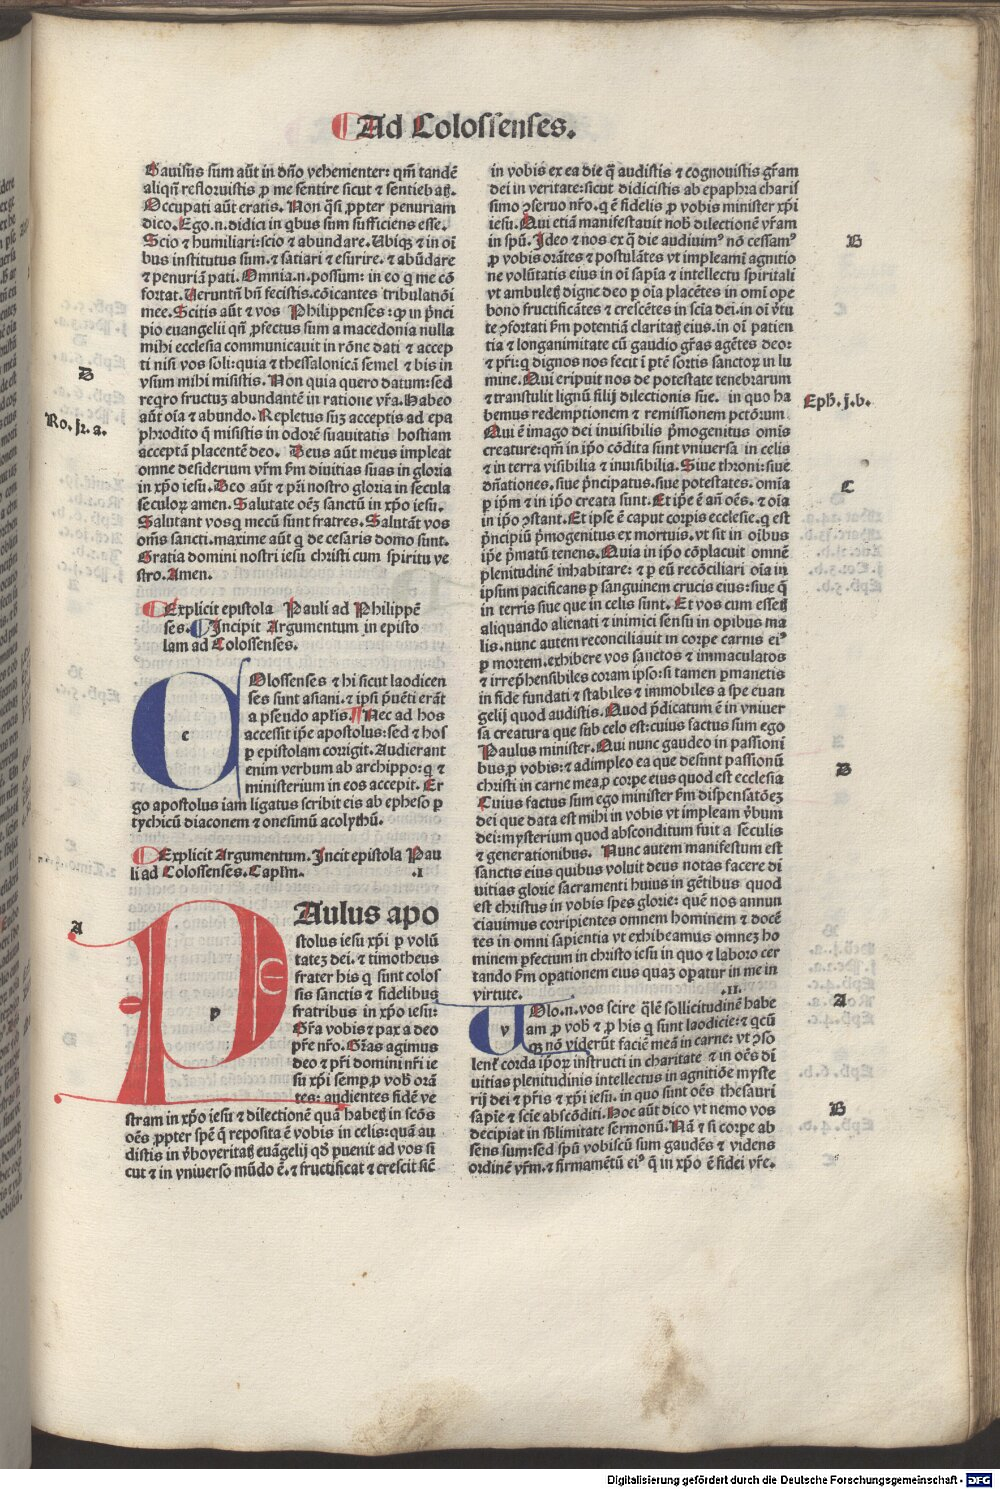 Ad Colossenses.
Gavisus sum aūt in dño vehementer: qm̄ tandē
aliqñ refloruistis ꝓ me sentire sicut ⁊ sentiebatꝭ.
Occupati aūt eratis. Non q̄si ꝓpter penuriam
dico. Ego.n.didici in qbus sum sufficiens esse.
Scio ⁊ humiliari: scio ⁊ abundare. Ubiqꝫ ⁊ in oī
bus institutus sum. ⁊ satiari ⁊ esurire. ⁊ abūdare
⁊ penuriā pati. Omnia.n.possum: in eo q me cō
fortat. Ueruntn̄ bn̄ fecistis. cōicantes tribulatiōi
mee. Scitis aūt ⁊ vos Philippenses: ꝙ in p̄nci
pio euangelij qn̄ ꝓfectus sum a macedonia nulla
mihi ecclesia communicauit in rōne dati ⁊ accep
ti nisi vos soli: quia ⁊ thessalonicā semel ⁊ bis in
vsum mihi misistis. Non quia quero datum: sed
reqro fructuꝫ abundantē in ratione vr̄a. Habeo
aūt oīa ⁊ abundo. Repletus suꝫ acceptis ad epa
phrodito q̄ misistis in odorē suauitatis hostiam
acceptā placentē deo. Deus aūt meus impleat
omne desiderium vr̄m s̄m diuitias suas in gloria
in xp̄o iesu. Deo aūt ⁊ p̄ri nostro gloria in secula
seculoꝝ amen. Salutate oēꝫ sanctū in xp̄o iesu.
Salutant vos q mecū sunt fratres. Salutāt vos
om̄s sancti. maxime aūt q de cesaris domo sunt.
Gratia domini nostri iesu christi cum spiritu ve
stro. Amen.
Explicit epistola Pauli ad Philippē
ses. Incipit Argumentum in episto
lam ad Colossenses.
c
Olossenses ⁊ hi sicut laodicen
ses sunt asiani. ⁊ ipsi p̄uēti erāt
a pseudo apl̄is. Nec ad hos
accessit ip̄e apostolus: sed ⁊ hos
ꝑ epistolam corrigit. Audierant
enim verbum ab archippo: q ⁊
ministerium in eos accepit. Er
go apostolus iam ligatus scribit eis ab epheso ꝑ
tychicū diaconem ⁊ onesimū acolythū.
Explicit Argumentum. Incit epistola Pau
li ad Colossenses. Capl̄m. .I
p
Aulus apo
stolus iesu xp̄i ꝑ volū
tateꝫ dei. ⁊ timotheus
frater his q sunt colos
sis sanctis ⁊ fidelibus
fratribus in xp̄o iesu:
Gr̄a vobis ⁊ pax a deo
p̄re nr̄o. Gr̄as agimus
deo ⁊ p̄ri domini nr̄i ie
su xp̄i semꝑ ꝓ vob̄ orā
tes: audientes fidē ve
stram in xp̄o iesu ⁊ dilectionē quā habetꝭ in scōs
oēs ꝓpter spē q̄ reposita ē vobis in celis: quā au
distis in v̄bo veritatꝭ euāgelij qd̄ puenit ad vos si
cut ⁊ in vniuerso mūdo ē. ⁊ fructificat ⁊ crescit sic̄
in vobis ex ea die q̄ audistis ⁊ cognouistis gr̄am
dei in veritate: sicut didicistis ab epaphra charis
simo ↄseruo nr̄o. q ē fidelis ꝓ vobis minister xp̄i
iesu. Qui etiā manifestauit nob̄ dilectionē vr̄am
in spū. Ideo ⁊ nos ex q̄ die audiuimꝰ nō cessamꝰ
ꝓ vobis orātes ⁊ postulātes vt impleamī agnitio
ne volūtatis eius in oī sapīa ⁊ intellectu spiritali
vt ambuletꝭ digne deo ꝑ oīa placētes in omī ope
bono fructificātes ⁊ crescētes in scīa dei. in oī v̄tu
te ↄfortati s̄m potentiā claritatꝭ eius. in oī patien
tia ⁊ longanimitate cū gaudio gr̄as agētes deo:
⁊ p̄ri: q dignos nos fecit ī p̄tē sortis sanctoꝝ in lu
mine. Qui eripuit nos de potestate tenebrarum
⁊ transtulit ī regnū filij dilectionis sue. in quo ha
bemus redemptionem ⁊ remissionem pctōrum.
Qui ē imago dei inuisibilis p̄mogenitus om̄is
creature: qm̄ in ip̄o cōdita sunt vniuersa in celis
⁊ in terra visibilia ⁊ inuisibilia. Siue throni: siue
dn̄ationes. siue p̄ncipatus. siue potestates. omīa
ꝑ ip̄m ⁊ in ip̄o creata sunt. Et ip̄e ē an̄ oēs. ⁊ oīa
in ip̄o ↄstant. Et ipse ē caput corpis ecclesie. q est
p̄ncipiū p̄mogenitus ex mortuis. vt sit in oibus
ip̄e p̄matū tenens. Quia in ip̄o cōplacuit omnē
plenitudinē inhabitare: ⁊ ꝑ eū recōciliari oīa in
ipsum pacificans ꝑ sanguinem crucis eius: siue q̄
in terris siue que in celis sunt. Et vos cum essetꝭ
aliquando alienati ⁊ inimici sensu in opibus ma
lis. nunc autem reconciliauit in corpe carnis eiꝰ
ꝑ mortem. exhibere vos sanctos ⁊ immaculatos
⁊ irrep̄hensibiles coram ipso: si tamen ꝑmanetis
in fide fundati ⁊ stabiles ⁊ immobiles a spe euan
gelij quod audistis. Quod p̄dicatum ē in vniuer
sa creatura que sub celo est: cuius factus sum ego
Paulus minister. Qui nunc gaudeo in passioni
bus ꝓ vobis: ⁊ adimpleo ea que desunt passionū
christi in carne mea ꝓ corpe eius quod est ecclesia
Cuius factus sum ego minister s̄m dispensatōeꝫ
dei que data est mihi in vobis vt impleam v̄bum
dei: mysterium quod absconditum fuit a seculis
⁊ generationibus. Nunc autem manifestum est
sanctis eius quibus voluit deus notas facere di
uitias glorie sacramenti huius in gētibus quod
est christus in vobis spes glorie: quē nos annun
ciauimus corripientes omnem hominem ⁊ docē
tes in omni sapientia vt exhibeamus omneꝫ ho
minem ꝑfectum in christo iesu in quo ⁊ laboro cer
tando s̄m opationem eius quaꝫ opatur in me in
virtute. .II.
v
Olo.n.vos scire q̄lē sollicitudinē habe
am ꝓ vob̄ ⁊ ꝓ his q sunt laodicie: ⁊ qcū
qꝫ nō viderūt faciē meā in carne: vt ↄso
lent̄ corda ip̄oꝝ instructi in charitate ⁊ in oēs di
uitias plenitudinis intellectus in agnitiōe myste
rij dei ⁊ p̄ris ⁊ xp̄i iesu. in quo sunt oēs thesauri
sapīe ⁊ scīe abscōditi. Hoc aūt dico vt nemo vos
decipiat in sb̄limitate sermonū. Nā ⁊ si corpe ab
sens sum: sed spū vobiscū sum gaudēs ⁊ videns
ordinē vr̄m. ⁊ firmamētū eiꝰ q̄ in xp̄o ē fidei vr̄e.
D
Ro.jz.a.
A
B
Eph.j.b.
C
D
A
B
Digitalisierung gefördert durch die Deutsche Forschungsgemeinschaft - DFG